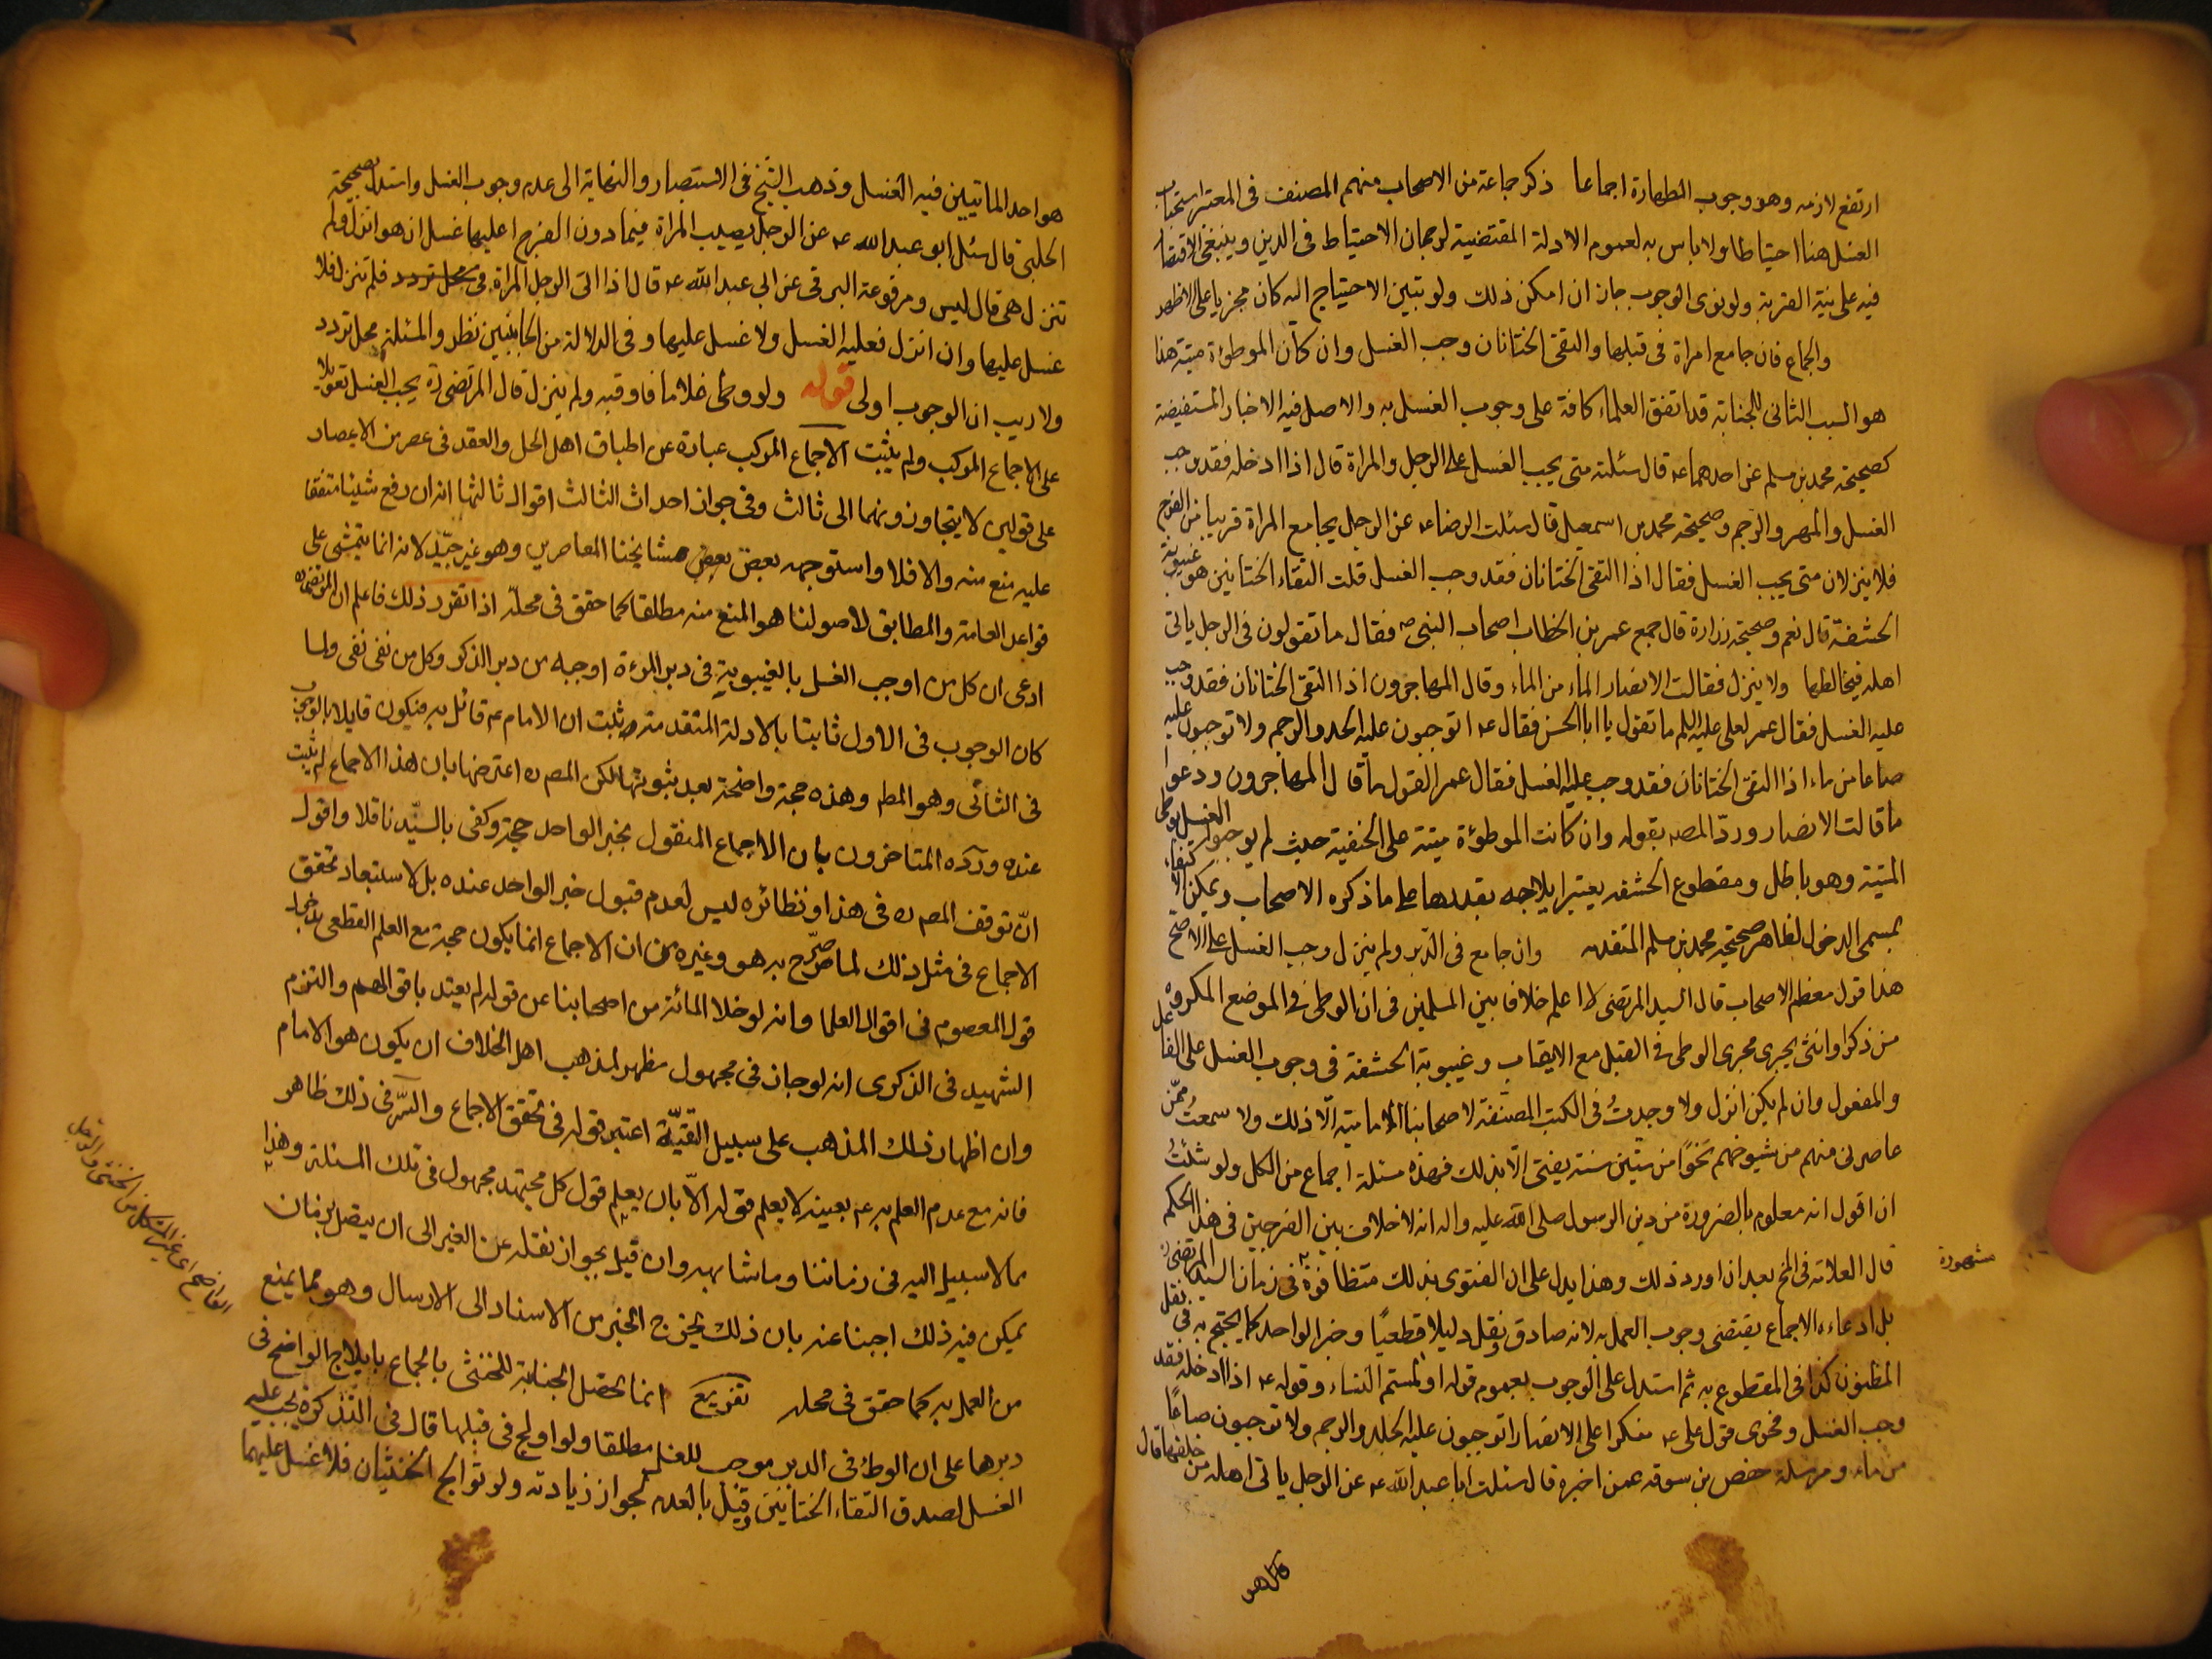 ارتفع لازمه وهو وجوب الطهارة اجماعا ذكر جماعة من الاصحاب منهم المصنف فى المعتبر استحباب
الغسل هنا احتياطا ولا باس به لعموم الادلة المقتضية لرجحان الاحتياط فى الدين وينبغى الاقتصار
فيه على نية القربة ولو نوى الوجوب جاز ان امكن ذلك ولو تبين الاحتياج اليه كان مجزيا على الاظهر
والجماع فان جامع امراة فى قبلها والتقى الختانان وجب الغسل وان كان الموطؤة ميتة هنا
هو السبب الثانى للجنابة قد اتفق العلماء كافة على وجوب الغسل به والاصل فيه الاخبار المستفيضة
كصحيحة محمد بن مسلم عن احدهما ع قال سئلته متى يجب الغسل على الرجل والمراة قال اذا ادخله فقد وجب
الغسل والمهر والرجم وصحيحة محمد بن اسمعيل قال سئلت الرضا ع عن الرجل يجامع المراة قريبا من الفرج
فلا ينزلان متى يجب الغسل فقال اذا التقى الختانان فقد وجب الغسل قلت التقاء الختانين هو غيبوبة
الحشفة قال نعم وصحيحة زرارة قال جمع عمر بن الخطاب اصحاب النبى ص فقال ما تقولون فى الرجل ياتى
اهله فيخالطها ولا ينزل فقالت الانصار الماء من الماء وقال المهاجرون اذا التقى الختانان فقد وجب
عليه الغسل فقال عمر لعلى عليه السلم ما تقول يا ابا الحسن فقال ع اتوجبون عليه الحد والرجم ولا توجبون عليه
صاعا من ماء اذا التقى الختانان فقد وجب عليه الغسل فقال عمر القول ما قال المهاجرون ودعوا
ما قالت الانصار وردّ المصه بقوله وان كانت الموطؤة ميتة على الحنفية حيث لم يوجبوا الغسل بوطى
الميتة وهو باطل ومقطوع الحشفه يعتبر ايلاجه بقدرها على ما ذكره الاصحاب ويمكن الاكتفاء
بمسمى الدخول لظاهر صحيحة محمد بن مسلم المتقدمه وان جامع فى الدبر ولم ينزل وجب الغسل على الاصح
هذا قول معظم الاصحاب قال السيد المرتضى لا اعلم خلافا بين المسلمين فى ان الوطى فى الموضع المكروه
من ذكر او انثى يجرى مجرى الوطى فى القبل مع الايقاب وغيبوبة الحشفة فى وجوب الغسل على الفاعل
والمفعول وان لم يكن انزل ولا وجدتُ فى الكتب المصنفة لاصحابنا الامامية الّا ذلك ولا سمعتُ ممّن
عاصرنى منهم من شيوخهم نحوًا من ستين سنة يفتى الّا بذلك فهذه مسئلة اجماع من الكل ولو شئتُ
ان اقول انه معلوم بالضرورة من دين الرسول صلى الله عليه واله انه لا خلاف بين الفرجين فى هذا الحكم
قال العلامة فى المخ بعد ان اورد ذلك وهذا يدل على ان الفتوى بذلك متظافرة فى زمان السيد المرتضى ره
مشهورة
بل ادعاءه الاجماع يقتضى وجوب العمل به لانه صادق ونقل دليلا قطعيًا وخبر الواحد كما يحتج به فى نقل
المظنون كذا فى المقطوع به ثم استدل على الوجوب بعموم قوله او لمستم النساء وقوله ع اذا ادخله فقد
وجب الغسل وفحوى قول على ع منكرا على الانصار اتوجبون عليه الجلد والرجم ولا توجبون صاعًا
من ماء ومرسلة حفص بن سوقه عمن اخبره قال سئلت ابا عبد الله ع عن الرجل ياتى اهله من خلفها قال
هو احد الماتيين فيه الغسل وذهب الشيخ فى الاستبصار والنهاية الى عدم وجوب الغسل واستدل بصحيحة
الحلبى قال سئل ابو عبد الله ع عن الرجل يصيب المراة فيما دون الفرج اعليها غسل ان هو انزل ولم
تنزل هى قال ليس ومرفوعة البرقى عن ابى عبد الله ع قال اذا اتى الرجل المراة فى فلم تنزل فلا
غسل عليها وان انزل فعليه الغسل ولا غسل عليها وفى الدلالة من الجانبين نظر والمسئلة محل تردد
ولا ريب ان الوجوب اولى قوله ولو وطى غلاما فاوقبه ولم ينزل قال المرتضى ره يجب الغسل تعويلا
على الاجماع المركب ولم يثبت الاجماع المركب عبارة عن اطباق اهل الحل والعقد فى عصر من الاعصار
على قولين لا يتجاوزونهما الى ثالث وفى جواز احداث الثالث اقوال ثالثها انه ان رفع شيئا متفقا
عليه منع منه والا فلا واستوجهه بعض مشايخنا المعاصرين وهو غير جيّد لانه انما يتمشى على
قواعد العامة والمطابق لاصولنا هو المنع منه مطلقا كما حقق فى محلّه اذا تقرر ذلك فاعلم ان المرتضى ره
ادعى ان كل من اوجب الغسل بالغيبوبة فى دبر المرءة اوجبه من دبر الذكر وكل من نفى نفى ولما
كان الوجوب فى الاول ثابتا بالادلة المتقدمة ثبت ان الامام ع قائل به فيكون قايلا بالوجوب
فى الثانى وهو المط وهذه حجة واضحة بعد ثبوتها لكن المصه ره اعترضها بان هذا الاجماع لم يثبت
عنده وردّه المتاخرون بان الاجماع المنقول بخبر الواحد حجة وكفى بالسيّد ناقلا واقول
انّ توقف المصه ره فى هذا ونظائره ليس لعدم قبول خبر الواحد عنده بل لاستبعاد تحقق
الاجماع فى مثل ذلك لما صرّح به هو وغيره من ان الاجماع انما يكون حجة مع العلم القطعى بدخول
قول المعصوم فى اقوال العلما وانه لو خلا المائة من اصحابنا عن قوله لم يعتد باقوالهم والتزم
الشهيد فى الذكرى انه لو جاز فى مجهول مظهر لمذهب اهل الخلاف ان يكون هو الامام
وان اظهار ذلك المذهب على سبيل التقيّة اعتبر قوله فى تحقق الاجماع والسّر فى ذلك ظاهر
فانه مع عدم العلم به ع بعينه لا يعلم قوله الّا بان يعلم قول كل مجتهد مجهول فى تلك المسئلة وهذا
مما لا سبيل اليه فى زماننا وما شابهه وان قيل بجواز نقله عن الغير الى ان يتصل بزمان
يمكن فيه ذلك اجبنا عنه بان ذلك يخرج الخبر من الاسناد الى الارسال وهو مما يمنع
من العمل به كما حقق فى محله تفريع انما يحصل الجنابة للخنثى بالجماع بايلاج الواضح فى
دبرها على ان الوطؤ فى الدبر موجب للغسل مطلقا ولو اولج فى قبلها قال فى التذكرة يجب عليه
الغسل لصدق التقاء الختانين وقيل بالعدم لجواز زيادته ولو توالج الخنثيان فلا غسل عليهما